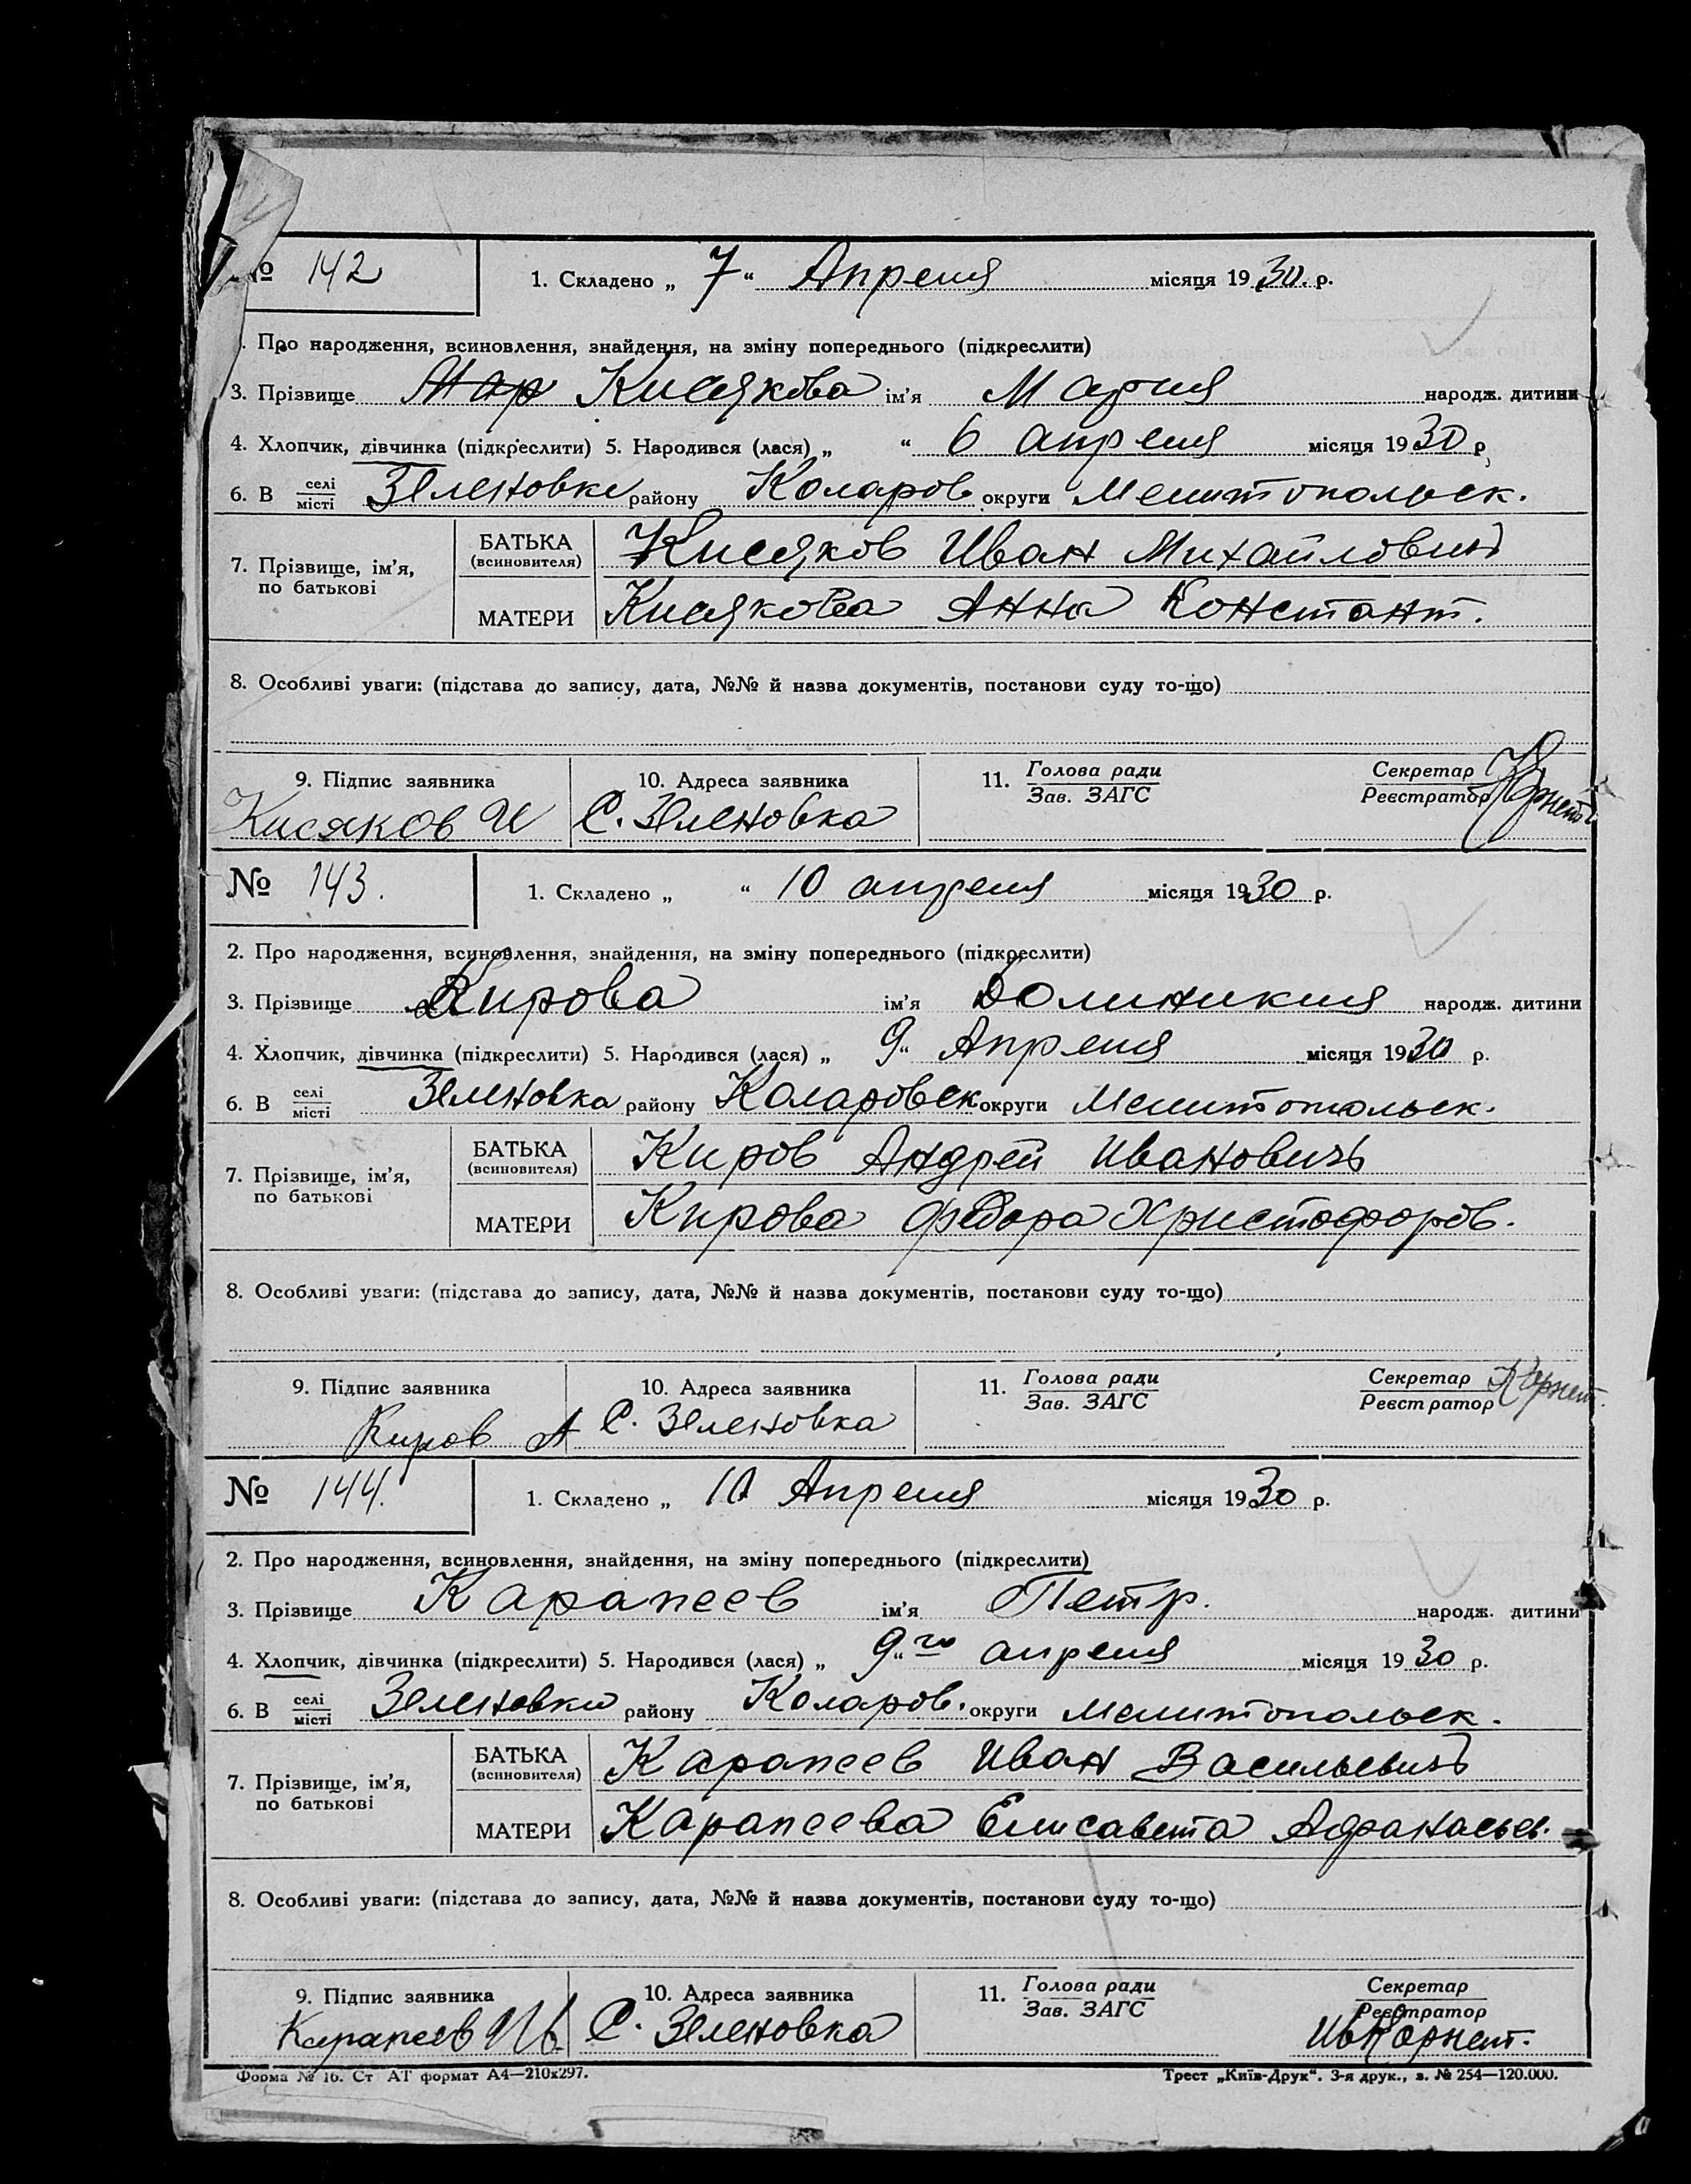 № 142
1. Складено „ 7 “ Апреля місяця 1930. р.
. Про народження, всиновлення, знайдення, на зміну попереднього (підкреслити)
3. Прізвище Мар Кисякова ім’я Мария народж. дитини
4. Хлопчик, дівчинка (підкреслити) 5. Народився (лася) „ “ 6 апреля місяця 1930 р
6. В селі місті Зеленовке району Коларов округи Мелитопольск.
7. Прізвище, ім’я, по батькові
БАТЬКА (всиновителя) Кисяков Иван Михайловичъ
МАТЕРИ Кисякова Анна Констант.
8. Особливі уваги: (підстава до запису, дата, №№ й назва документів, постанови суду то-що)
9. Підпис заявника 10. Адреса заявника 11. Голова ради Зав. ЗАГС Секретар Реєстратор
Кисяков И С. Зеленовка
№ 143.
1. Складено „ “ 10 апреля місяця 1930 р.
2. Про народження, всиновлення, знайдення, на зміну попереднього (підкреслити)
3. Прізвище Кирова ім’я Доминикия народж. дитини
4. Хлопчик, дівчинка (підкреслити) 5. Народився (лася) „ 9 “ Апреля місяця 1930 р.
6. В селі місті Зеленовка району Коларовск округи Мелитопольск.
7. Прізвище, ім’я, по батькові
БАТЬКА (всиновителя) Киров Андрей Ивановичъ
МАТЕРИ Кирова Федора Христофоров.
8. Особливі уваги: (підстава до запису, дата, №№ й назва документів, постанови суду то-що)
9. Підпис заявника 10. Адреса заявника 11. Голова ради Зав. ЗАГС Секретар Реєстратор Корнет.
Киров А С. Зеленовка
№ 144.
1. Складено „ 10 Апреля місяця 1930 р.
2. Про народження, всиновлення, знайдення, на зміну попереднього (підкреслити)
3. Прізвище Карапеев ім’я Петр. народж. дитини
4. Хлопчик, дівчинка (підкреслити) 5. Народився (лася) „ 9 “ го апреля місяця 1930 р.
6. В селі місті Зеленовки району Коларов. округи Мелитопольск.
7. Прізвище, ім’я, по батькові
БАТЬКА (всиновителя) Карапеев Иван Васильевичъ
МАТЕРИ Карапеева Елисавета Афанасьев.
8. Особливі уваги: (підстава до запису, дата, №№ й назва документів, постанови суду то-що)
9. Підпис заявника 10. Адреса заявника 11. Голова ради Зав. ЗАГС Секретар Реєстратор
Карапеев Ив С. Зеленовка ИвКорнет.
Форма № 16. Ст АТ формат А4—210х297.
Трест „Київ-Друк“. 3-я друк., з. № 254—120.000.